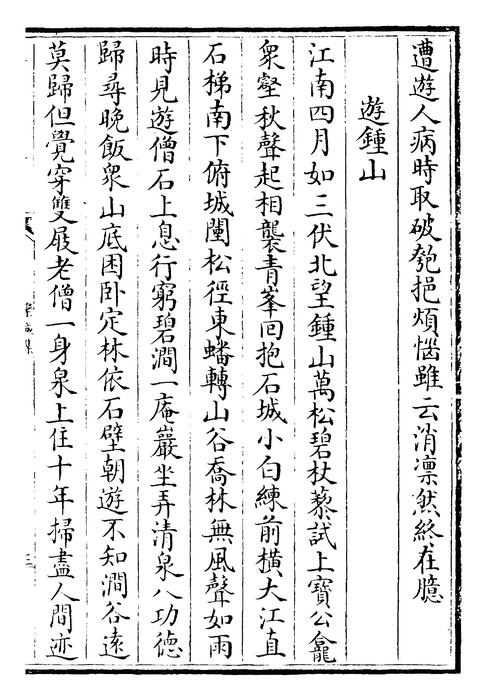 遭遊人病時取破匏挹煩惱雖云消凛然終在臆
遊鍾山
江南四月如三伏北望鍾山萬松碧杖藜試上寶公龕
衆壑秋聲起相襲青峯回抱石城小白練前横大江直
石梯南下俯城闉松徑東蟠轉山谷喬林無風聲如雨
時見遊僧石上息行窮碧澗一庵巖坐弄清泉八功徳
歸尋晚飯衆山底困卧定林依石壁朝遊不知澗谷逺
莫歸但覺穿雙屐老僧一身泉上住十年掃盡人間迹